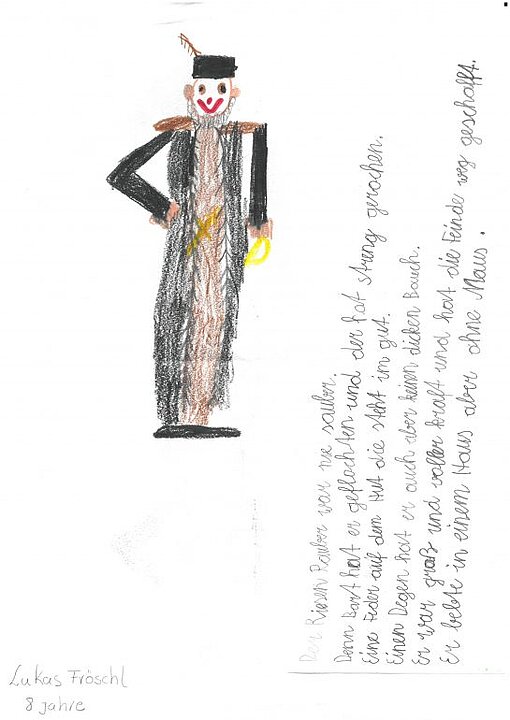 Der Riesen Räuber war nie sauber.
Denn Bart hat er geflochten und der hat streng gerochen.
Eine Feder auf dem Hut die steht im gut.
Einen Degen hat er auch aber keinen dicken Bauch.
Er war groß und voller kraft und hat die Feinde weg geschafft.
Er lebte in einem Haus aber ohne Maus.
Lukas Fröschl
8 Jahre